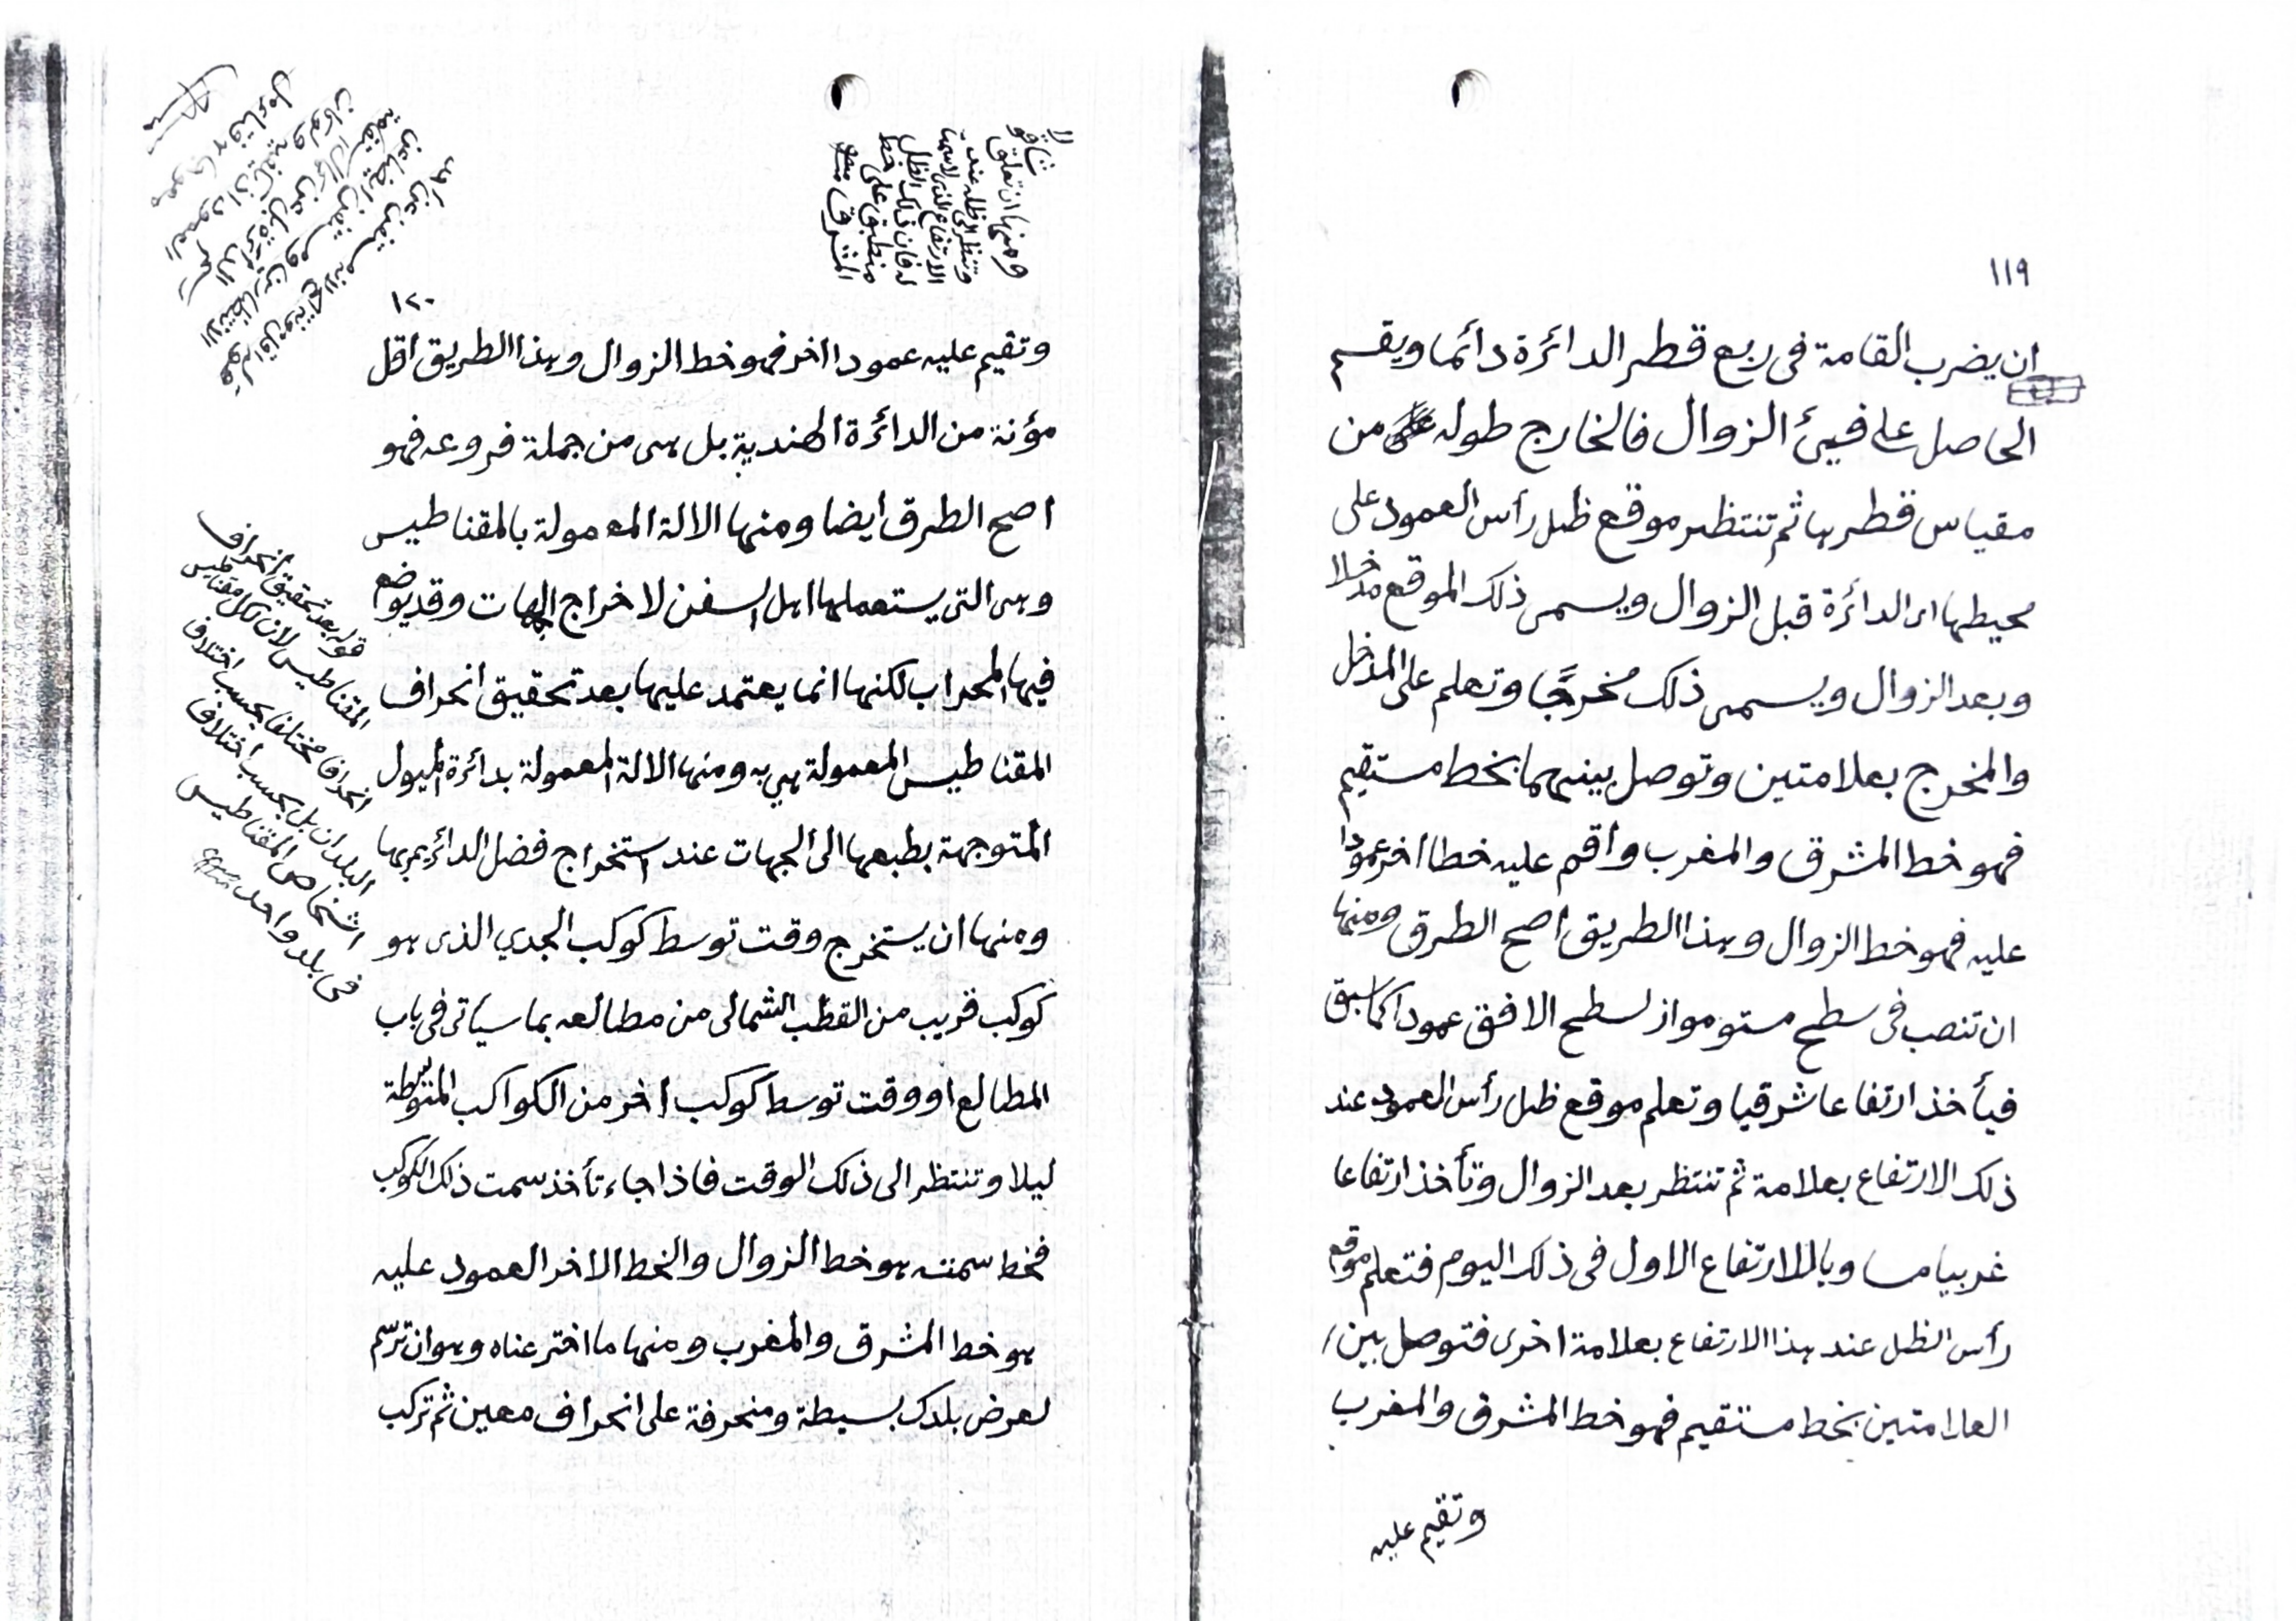 ١١٩
ان يضرب القامة فى ربع قطر الدائرة دائما ويقسم
الحاصل على فيئ الزوال فالخارج طوله من
مقياس قطرها ثم تنتظر موقع ظل رأس العمود على
محيطها اى الدائرة قبل الزوال ويسمى ذلك الموقع مدخلا
وبعد الزوال ويسمى ذلك مخرجًا وتعلم على المدخل
والمخرج بعلامتين وتوصل بينهما بخط مستقيم
فهو خط المشرق والمغرب واقم عليه خطا اخر عمودا
عليه فهو خط الزوال وهذا الطريق اصح الطرق ومنها
ان تنصب فى سطح مستو مواز لسطح الافق عمودا كما سبق
فيأخذ ارتفاعا شرقيا وتعلم موقع ظل رأس العمود عند
ذلك الارتفاع بعلامة ثم تنتظر بعد الزوال وتأخذ ارتفاعا
غربيا مساويا للارتفاع الاول فى ذلك اليوم فتعلم موقع
رأس الظل عند هذا الارتفاع بعلامة اخرى فتوصل بين
العلامتين بخط مستقيم فهو خط المشرق والمغرب
وتقيم عليه
١٢٠
ومنها ان تعلق شاقولا
وتنظر الى ظله عند
الارتفاع الذى لا سمت
له فان ذلك الظل
منطبق على خط
المشرق منه
وتقيم عليه عمودا اخر فهو خط الزوال وهذا الطريق اقل
مؤنة من الدائرة الهندية بل هى من جملة فروعه فهو
اصح الطرق ايضا ومنها الالة المعمولة بالمقناطيس
وهى التى يستعملها اهل السفن لاخراج الجهات وقد يوضع
فيها المحراب لكنها انما يعتمد عليها بعد تحقيق انحراف
المقناطيس المعمولة هى به ومنها الالة المعمولة بدائرة الميول
المتوجهة بطبعها الى الجهات عند استخراج فضل الدائر بمريها
ومنها ان يستخرج وقت توسط كوكب الجدي الذى هو
كوكب قريب من القطب الشمالى من مطالعه بما سيأتى فى باب
المطالع او وقت توسط كوكب اخر من الكواكب المتوسطة
ليلا وتنتظر الى ذلك الوقت فاذا جاء تأخذ سمت ذلك الكوكب
فخط سمته هو خط الزوال والخط الاخر العمود عليه
هو خط المشرق والمغرب ومنها ما اخترعناه وهو ان ترسم
لعرض بلدك بسيطة ومنحرفة على انحراف معين ثم تركب
قوله بعد تحقيق انحراف
المقناطيس لان لكل مقناطيس
انحرافا مختلفا بحسب اختلاف
البلدان بل بحسب اختلاف
اشخاص المقناطيس
فى بلد واحد